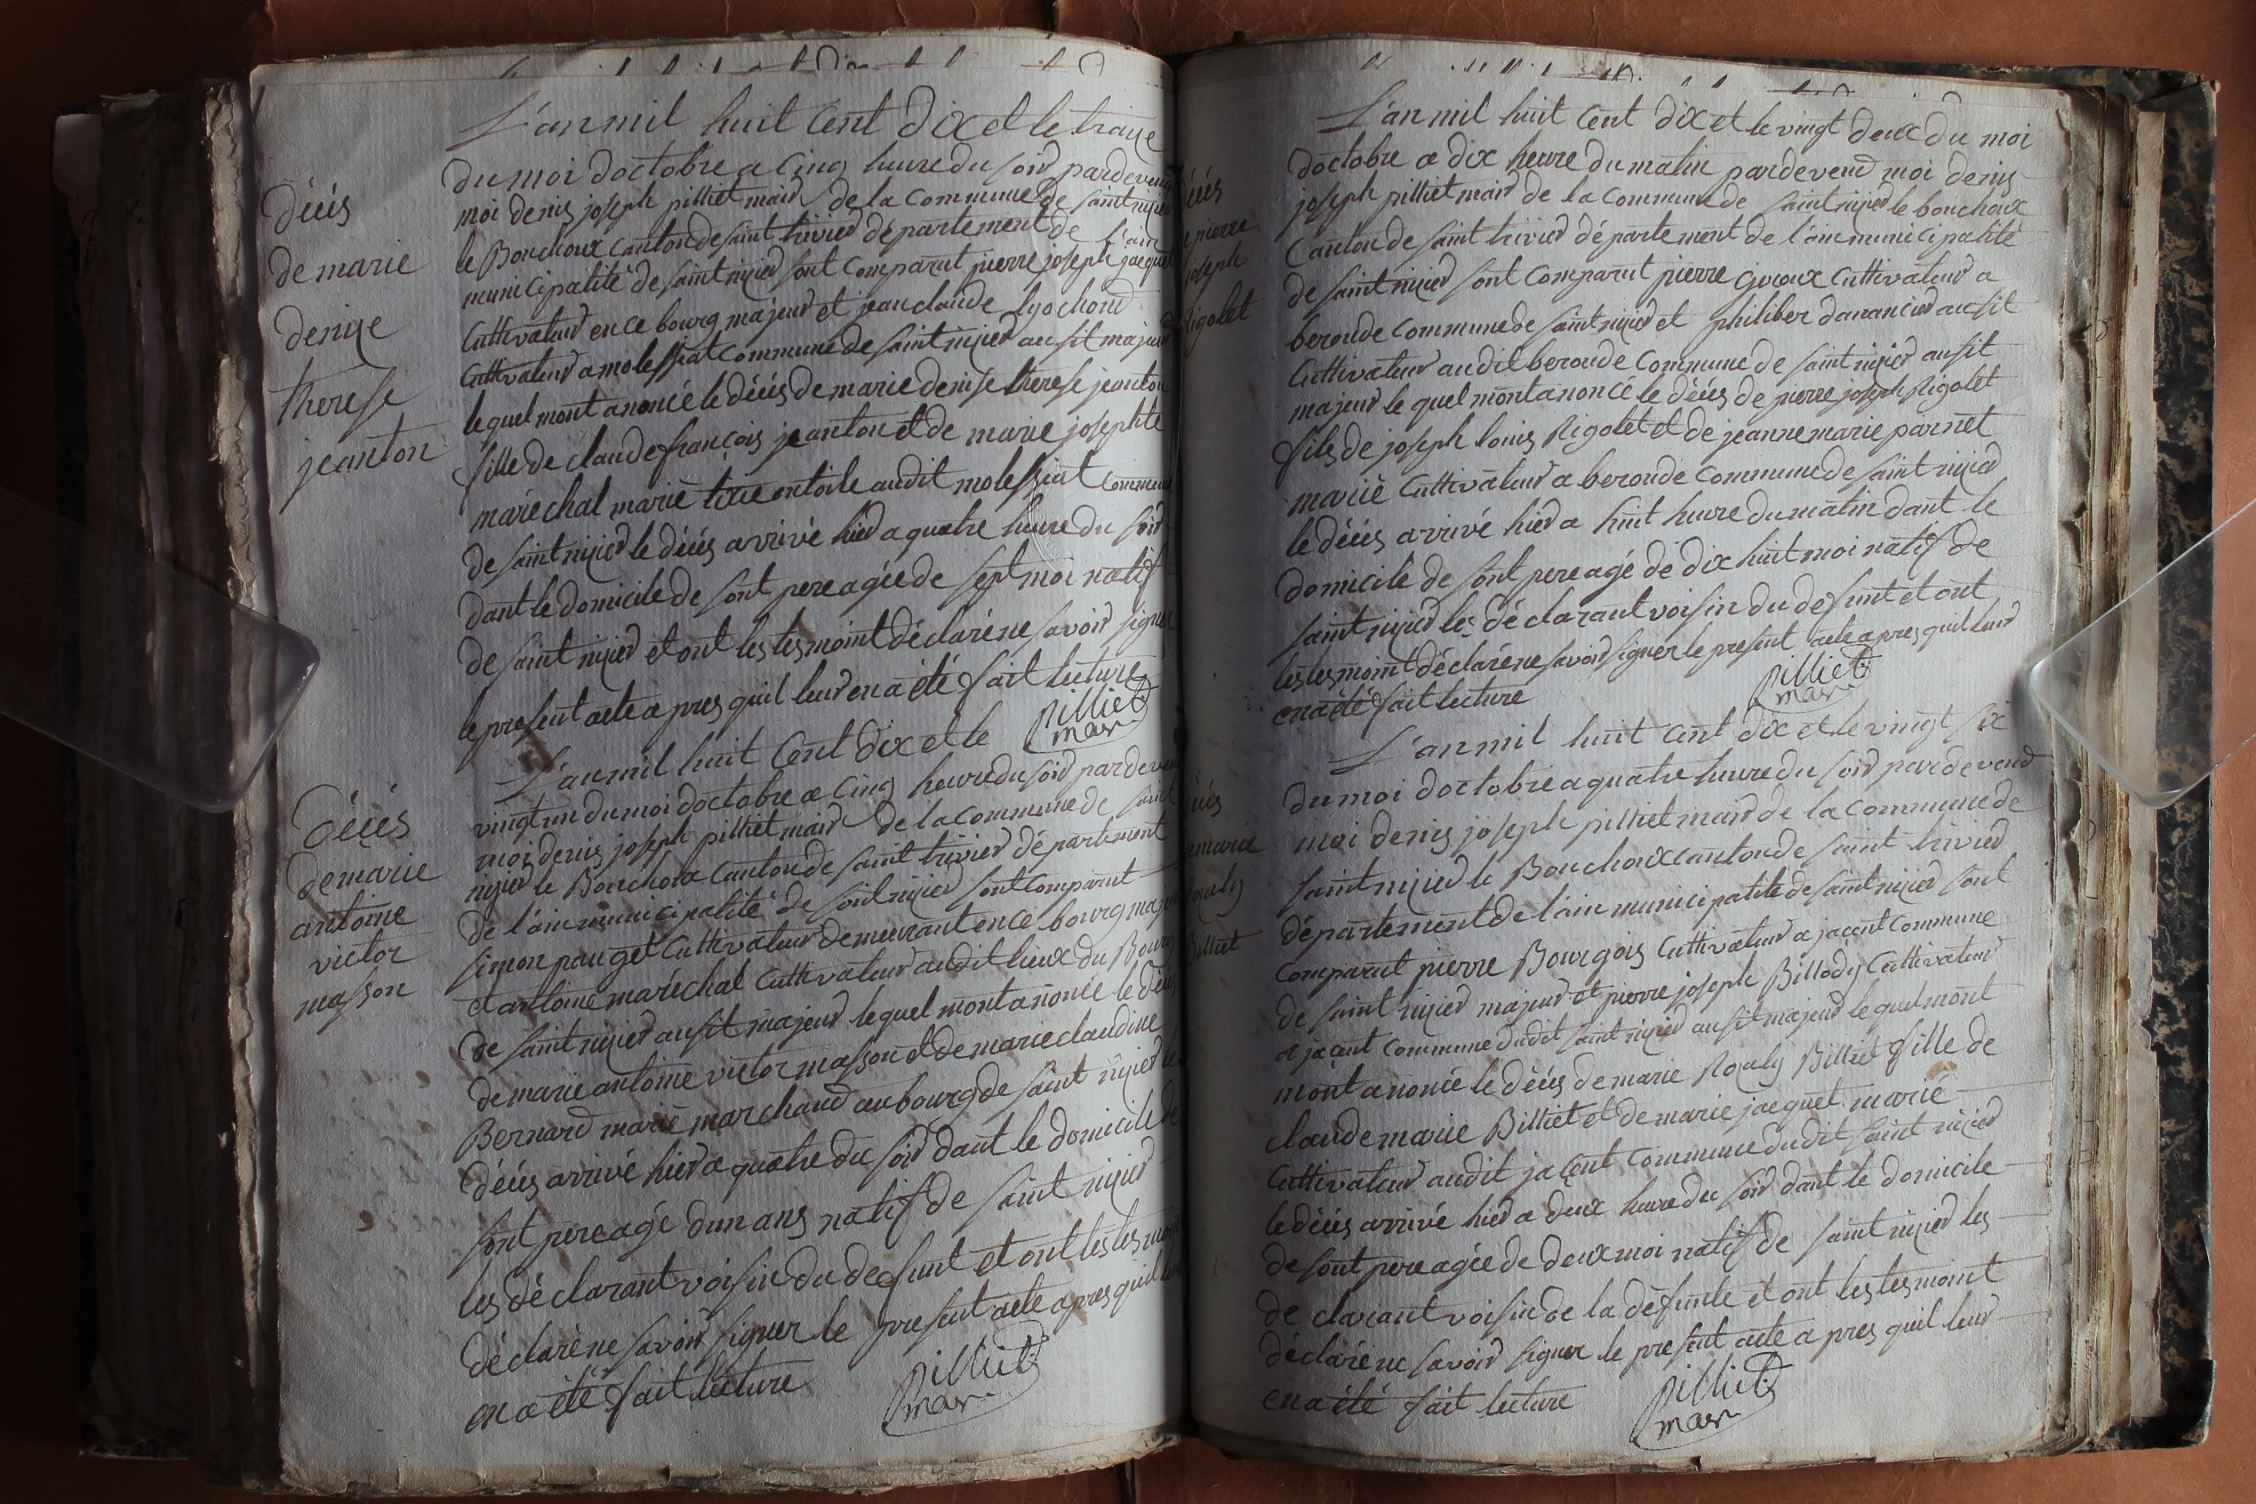 Décés
de marie
denise
therese
jeanton
L'an mil huit Cent dix et le traize
du moi doctobre a cinq heure du soir pardevend
moi denis joseph pilliet mair de la Commune de saint nizier
le Bouchoux canton de saint trivier département de l'ain
municipalité de saint nizier sont comparut pierre joseph jacquet
Cultivateur en ce bourg majeur et jean claude
Cultivateur a molessiat commune de saint nizier ausit majeur
lequel mont anoncé le décés de marie denise therese jeanton
fille de claude françois jeanton et de marie josephte
maréchal marié audit molessiat Commune
de saint nizier le décés arrivé hier a quatre heure du soir
dant le domicile de sont pere agée de sept moi natif
de saint nizier et ont les tesmoint déclaré ne savoir signer
le present acte apres quil leur en a été fait lecture
pilliet
mair
Décés
de marie
antoine
victor
masson
L'an mil huit Cent dix et le
vingt un du moi doctobre a cinq heure du soir pardevend
moi denis joseph pilliet mair de la commune de saint
nizier le Bouchoux Canton de saint trivier département
de l'ain municipalité de saint nizier sont comparut
simon pauget Cultivateur demeurant en ce bourg majeur
et antoine maréchal Cultivateur audit lieux du Bourg
de saint nizier ausit majeur lequel mont anoncé le décés
de marie antoine victor masson et de marie claudine
Bernard marié marchand au bourg de saint nizier le
décés arrivé hier a quatre du soir dant le domicile de
sont pere agé dun ans natif de saint nizier
les déclarant voisin du defunt et ont les tesmoint
déclaré ne savoir signer le present acte apres quil leur
en a été fait lecture
pilliet
mair
décés
de pierre
joseph
Rigolet
L'an mil huit Cent dix et le vingt deux du moi
doctobre a dix heure du matin pardevend moi denis
joseph pilliet mair de la Commune de saint nizier le bouchoux
Canton de saint trivier département de l'ain municipalité
de saint nizier sont comparut pierre giroux Cultivateur a
beroude commune de saint nizier et philiber danancier ausit
Cultivateur audit beroude Commune de saint nizier ausit
majeur lequel mont anoncé le décés de pierre joseph Rigolet
fils de joseph louis Rigolet et de jeanne marie parnet
marié Cultivateur a beroude Commune de saint nizier
le décés arrivé hier a huit heure du matin dant le
domicile de sont pere agé de dix huit moi natif de
saint nizier les déclarant voisin du defunt et ont
les tesmoint déclaré ne savoir signer le present acte apres quil leur
en a été fait lecture
pilliet
mair
décés
de marie
Rozaly
Billiet
L'an mil huit Cent dix et le vingt six
du moi doctobre a quatre heure du soir pardevend
moi denis joseph pilliet mair de la Commune de
saint nizier le Bouchoux canton de saint trivier
département de l'ain municipalité de saint nizier sont
comparut pierre Bourgois Cultivateur a jacent Commune
de saint nizier majeur et pierre joseph Billody Cultivateur
a jacent Commune dudit saint nizier ausit majeur lequel mont
mont anoncé le décés de marie Rozaly Billiet fille de
claude marie Billiet et de marie jacquet marié
Cultivateur audit jacent Commune dudit saint nizier
le décés arrivé hier a deux heure du soir dant le domicile
de sont pere agée de deux moi natif de saint nizier les
declarant voisin de la défunte et ont les tesmoint
déclaré ne savoir signer le present acte apres quil leur
en a été fait lecture
pilliet
mair